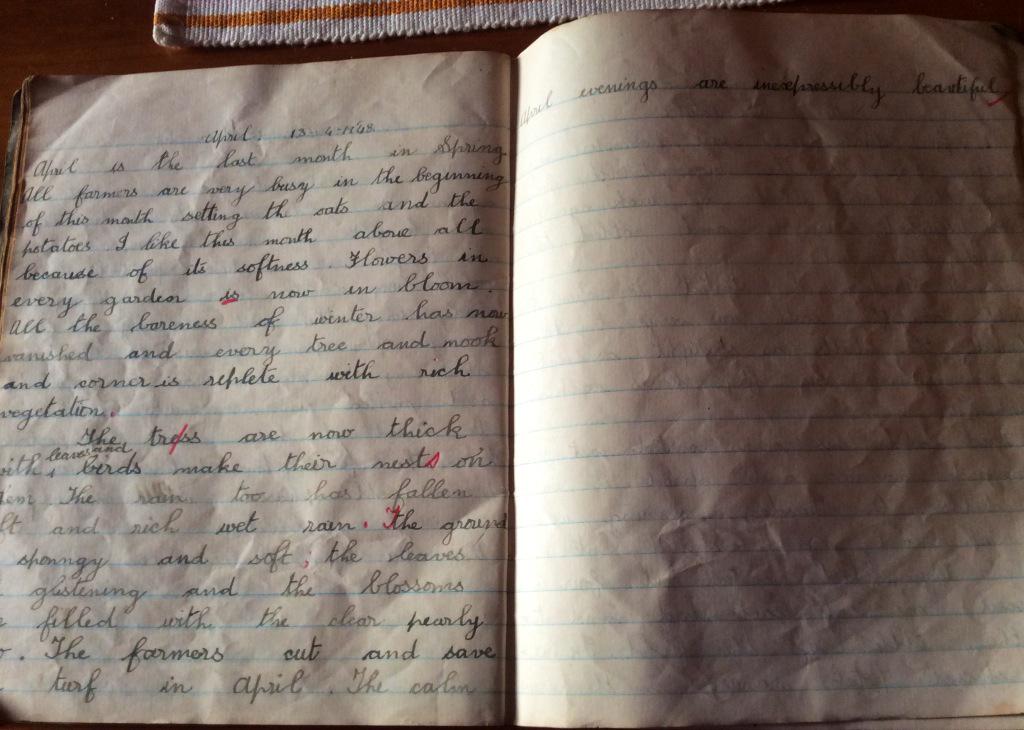 April. 13-4-1948
April is the last month in Spring
All farmers are very busy in the beginning
of this month setting th oats and the
potatoes I like this month above all
because of its softness. Flowers in
every garden is now in bloom.
All the bareness of winter has now
vanished and every tree and nook
and corner is replete with rich
vegetation.
The tress are now thick
with leaves and birds make their nests on
The rain too has fallen
and rich wet rain. The ground
sponngy and soft; the leaves
glistening and the blossoms
filled with the clear pearly
The farmers cut and save
turf in April. The calm
April evenings are inexpressibly beautiful